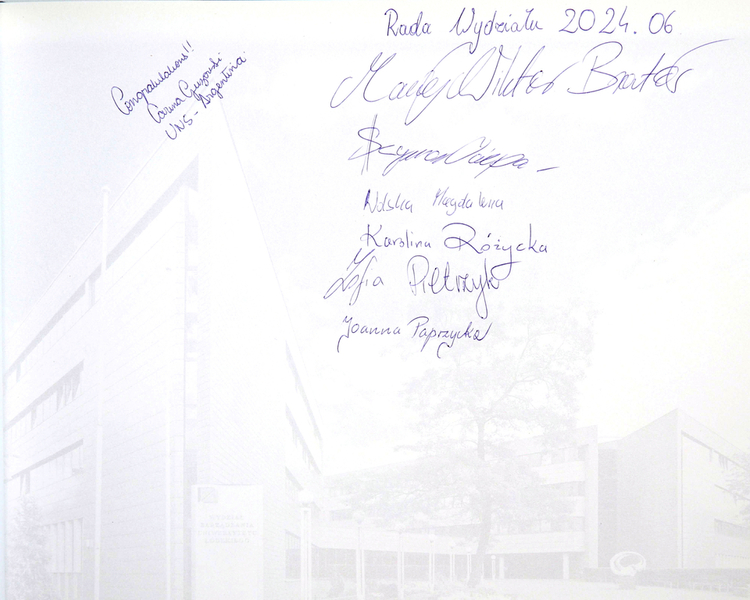 Congratulations!!
Carina
UNS - Argentina
Rada Wydziału 2024.06
Maciej Wiktor
Szymon
Wilska Magdalena
Karolina Różycka
Zofia Pietrzyk
Joanna Paprzycka